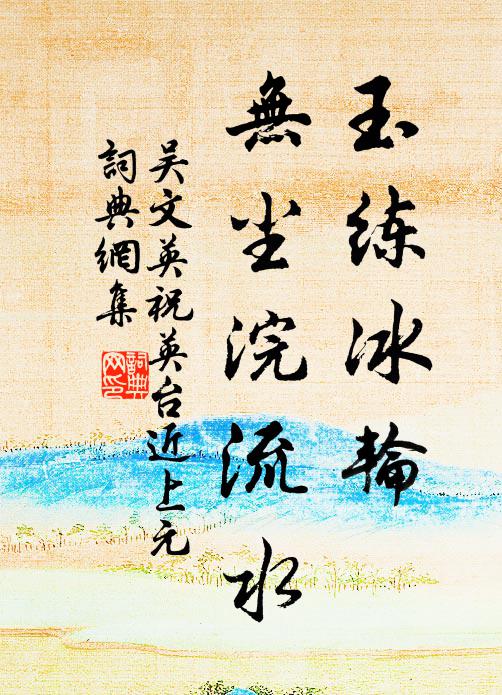 玉练冰輪
無尘浣流水
吴文英祝英台近上元
詞典網集
詞典網印